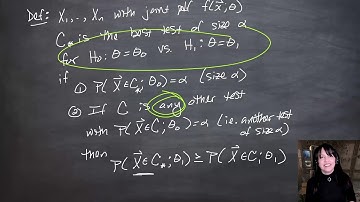 Def: X₁, ..., Xₙ with joint pdf f(x⃗; θ)
C* is the best test of size α
for H₀: θ = θ₀ vs. H₁: θ = θ₁
if
① P(X⃗ ∈ C*; θ₀) = α (size α)
② If C is any other test
with P(X⃗ ∈ C; θ₀) = α (i.e. another test
of size α)
then
P(X⃗ ∈ C*; θ₁) ≥ P(X⃗ ∈ C; θ₁)